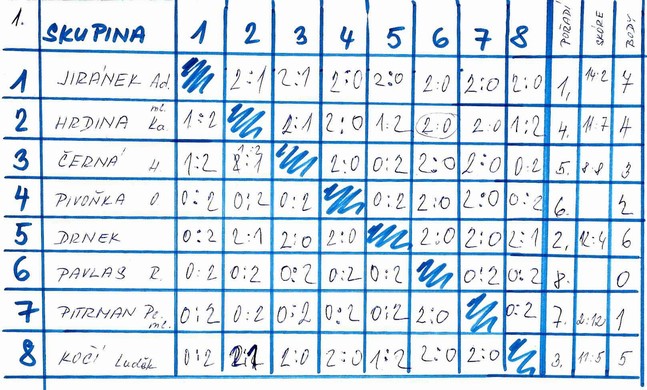 1. SKUPINA 1 2 3 4 5 6 7 8 POŘADÍ SKÓRE BODY
1 JIRÁNEK Ad. 2:1 2:1 2:0 2:0 2:0 2:0 2:0 1. 14:2 7
2 HRDINA ml. Ka. 1:2 2:1 2:0 1:2 2:0 2:0 1:2 4. 11:7 4
3 ČERNÁ H 1:2 1:2 2:0 0:2 2:0 2:0 0:2 5. 8:8 3
4 PIVOŇKA O. 0:2 0:2 0:2 0:2 2:0 2:0 0:2 6. 2
5 DRNEK 0:2 2:1 2:0 2:0 2:0 2:0 2:1 2. 12:4 6
6 PAVLAS R. 0:2 0:2 0:2 0:2 0:2 0:2 0:2 8. 0
7 PITRMAN Pe. ml. 0:2 0:2 0:2 0:2 0:2 2:0 0:2 7. 2:12 1
8 KOČÍ Luděk 0:2 2:1 2:0 2:0 1:2 2:0 2:0 3. 11:5 5